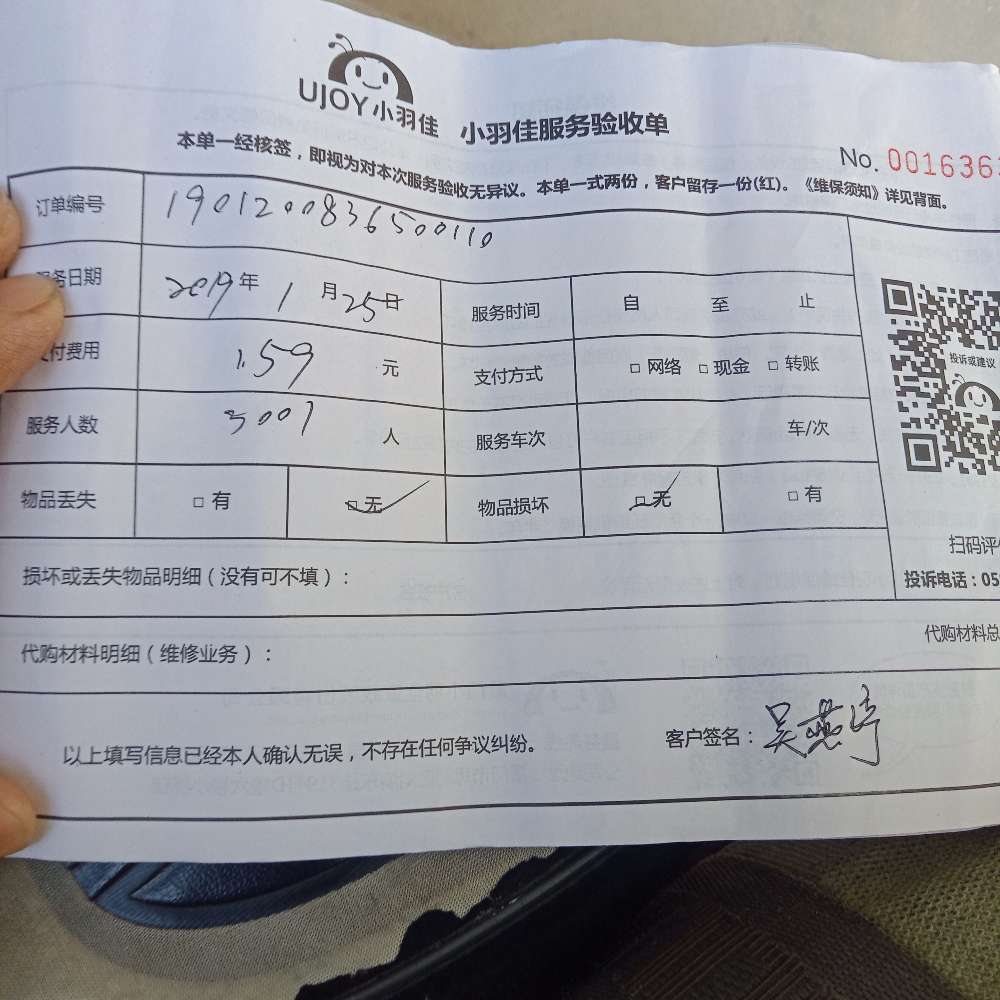 UJOY小羽佳
小羽佳服务验收单
No. 0016363
本单一经核签，即视为对本次服务验收无异议。本单一式两份，客户留存一份(红)。《维保须知》详见背面。
订单编号 1901200836500110
务日期 2019年 1 月25日 服务时间 自 至 止
付费用 159 元 支付方式 □ 网络 □ 现金 □ 转账
服务人数 3001 人 服务车次 车/次
物品丢失 □ 有 □ 无 物品损坏 □ 无 □ 有
投诉或建议
扫码评
投诉电话：05
损坏或丢失物品明细（没有可不填）：
代购材料明细（维修业务）：
代购材料总
以上填写信息已经本人确认无误，不存在任何争议纠纷。
客户签名：吴燕